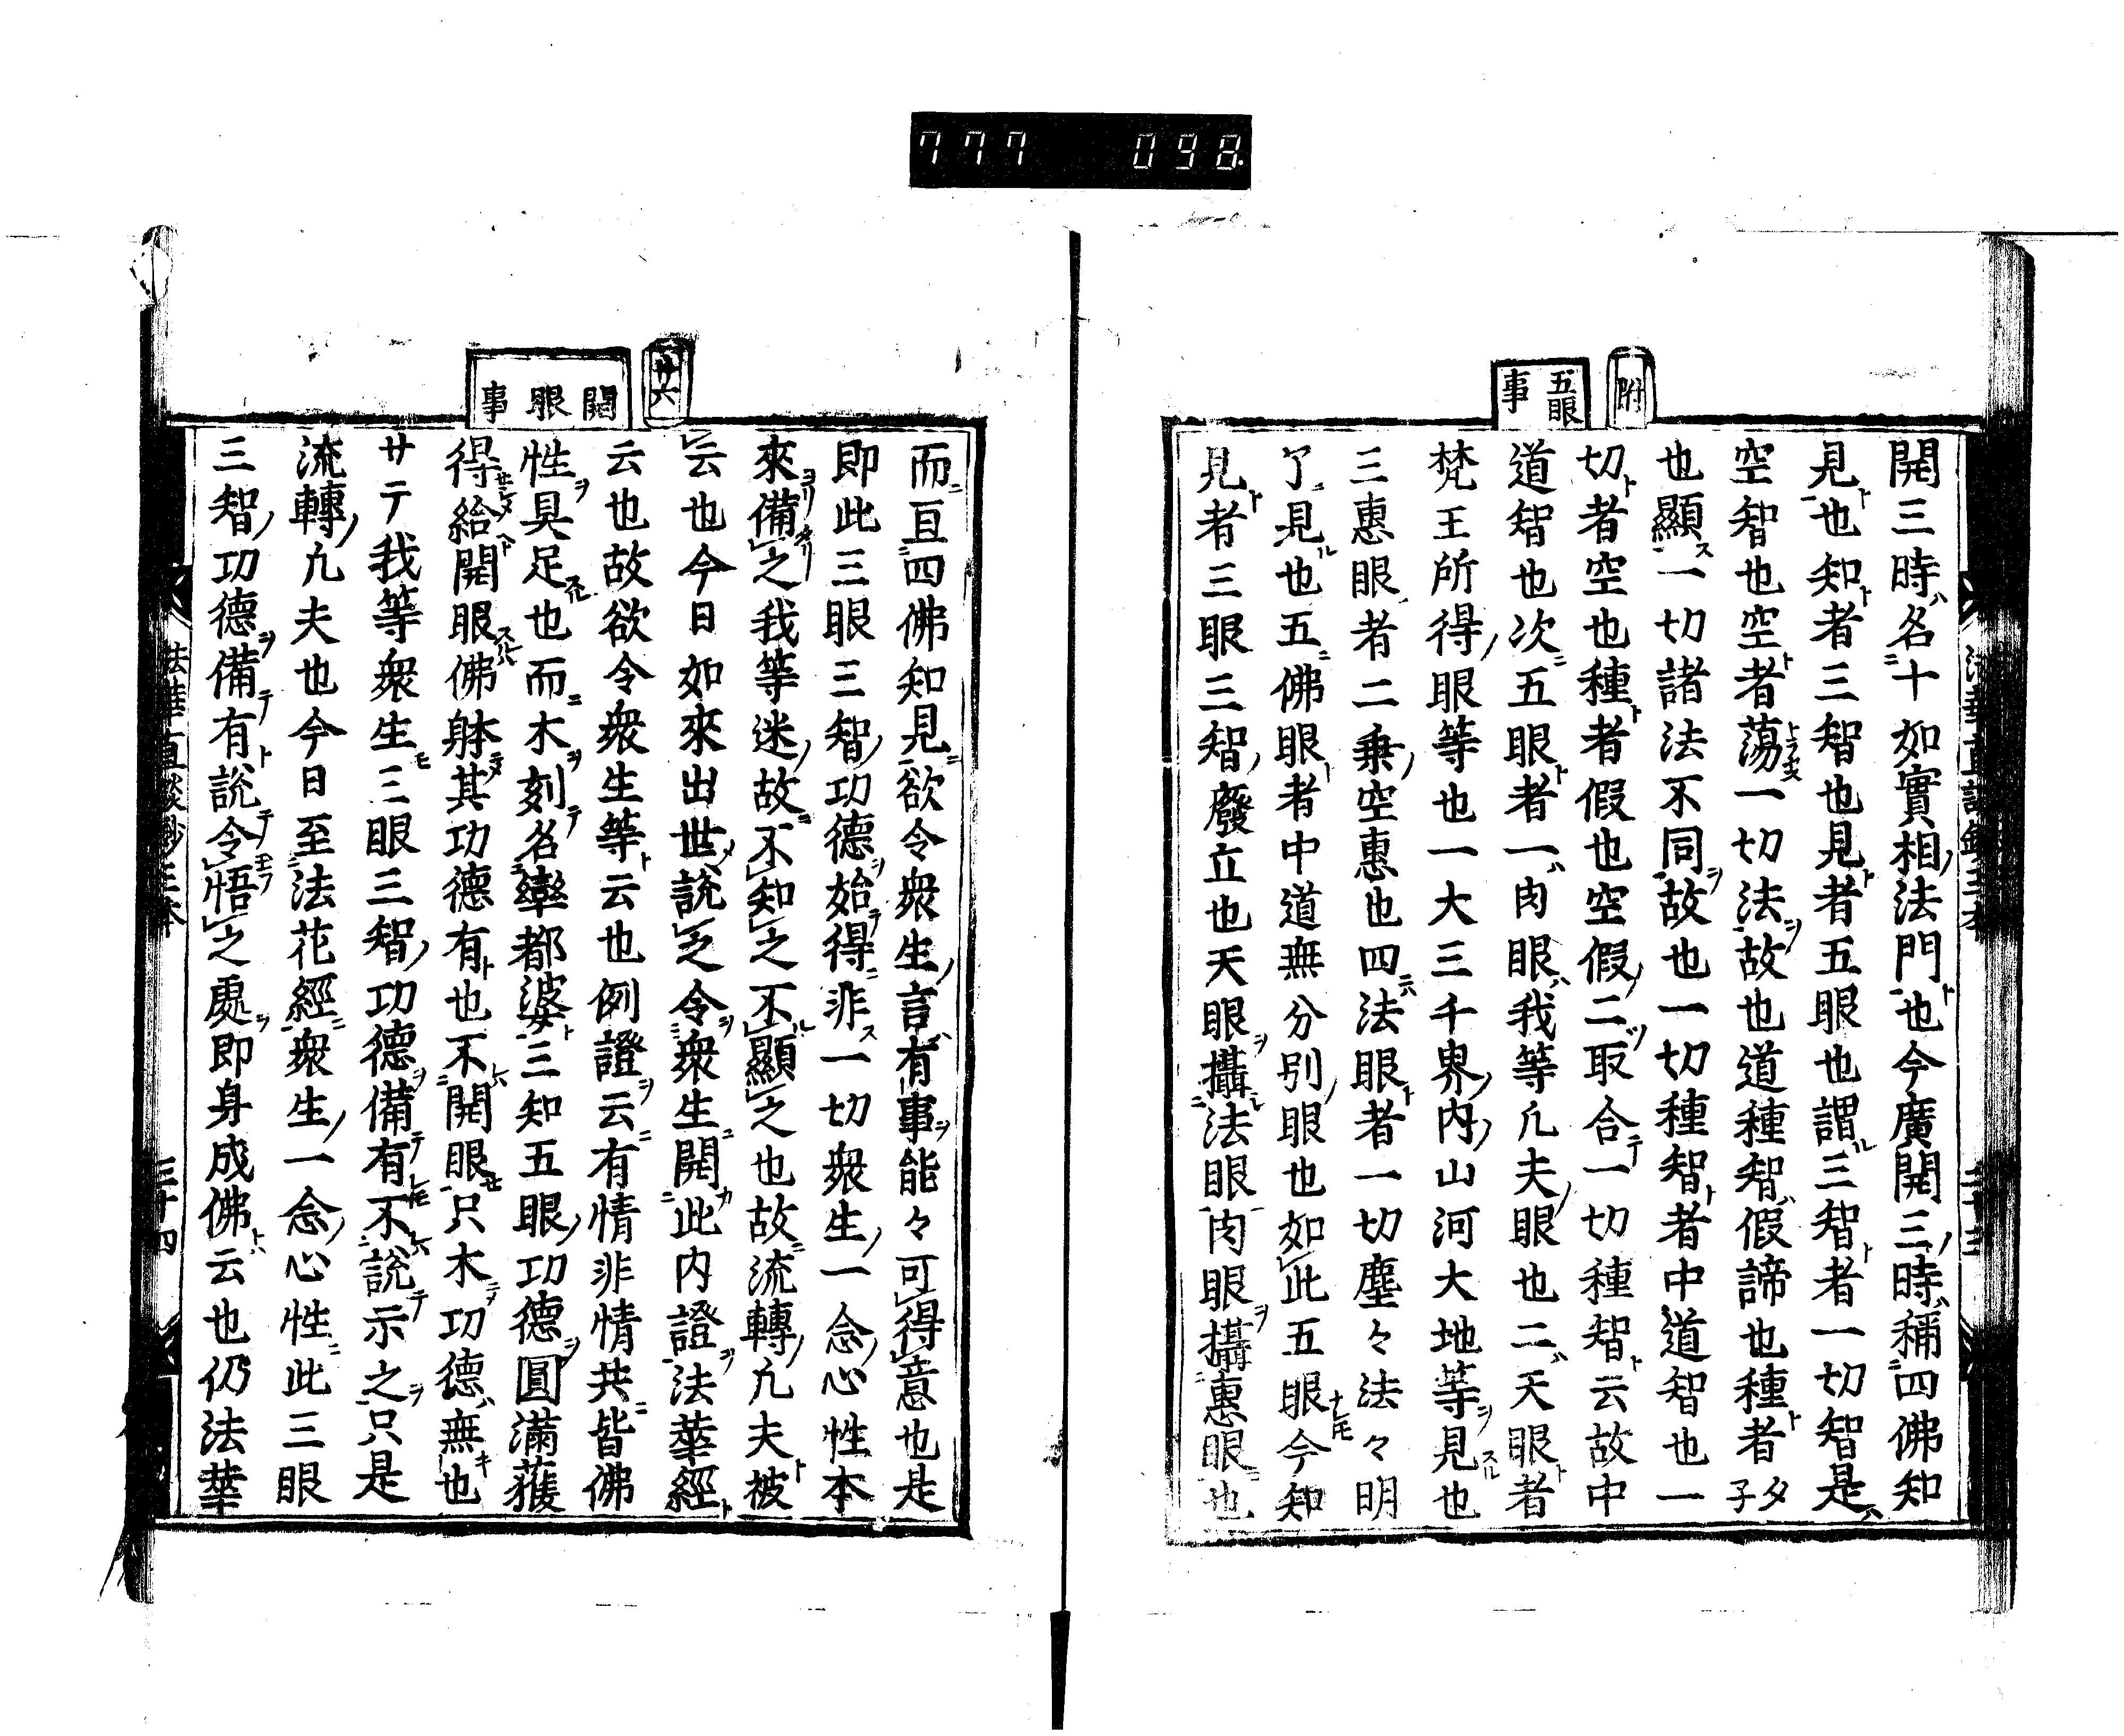 777 098
附
五眼事
開三時名十如實相法門也今廣開三時稱四佛知
見也知者三智也見者五眼也謂三智者一切智是
空智也空者蕩一切法故也道種智假諦也種者タ子
也顯一切諸法不同故也一切種智者中道智也一
切者空也種者假也空假二取合一切種智云故中
道智也次五眼者一肉眼我等凡夫眼也二天眼者
梵王所得眼等也一大三千界内山河大地等見也
三惠眼者二乗空惠也四法眼者一切塵々法々明
了見也五佛眼者中道無分別眼也如此五眼今知
見者三眼三智廢立也天眼攝法眼肉眼攝惠眼也
廿六
開眼事
而亘四佛知見欲令衆生言有事能々可得意也是
即此三眼三智功德始得非一切衆生一念心性本
來備之我等迷故不知之不顯之也故流轉凡夫被
云也今日如來出世說之令衆生開此内證法華經
云也故欲令衆生等云也例證云有情非情共皆佛
性具足也而木刻名率都婆三知五眼功德圓滿獲
得給開眼佛躰其功德有也不開眼只木功德無也
サテ我等衆生三眼三智功德備有不說示之只是
流轉凡夫也今日至法花經衆生一念心性此三眼
三智功德備有說令悟之處即身成佛云也仍法華
法華直談鈔三本 三十四